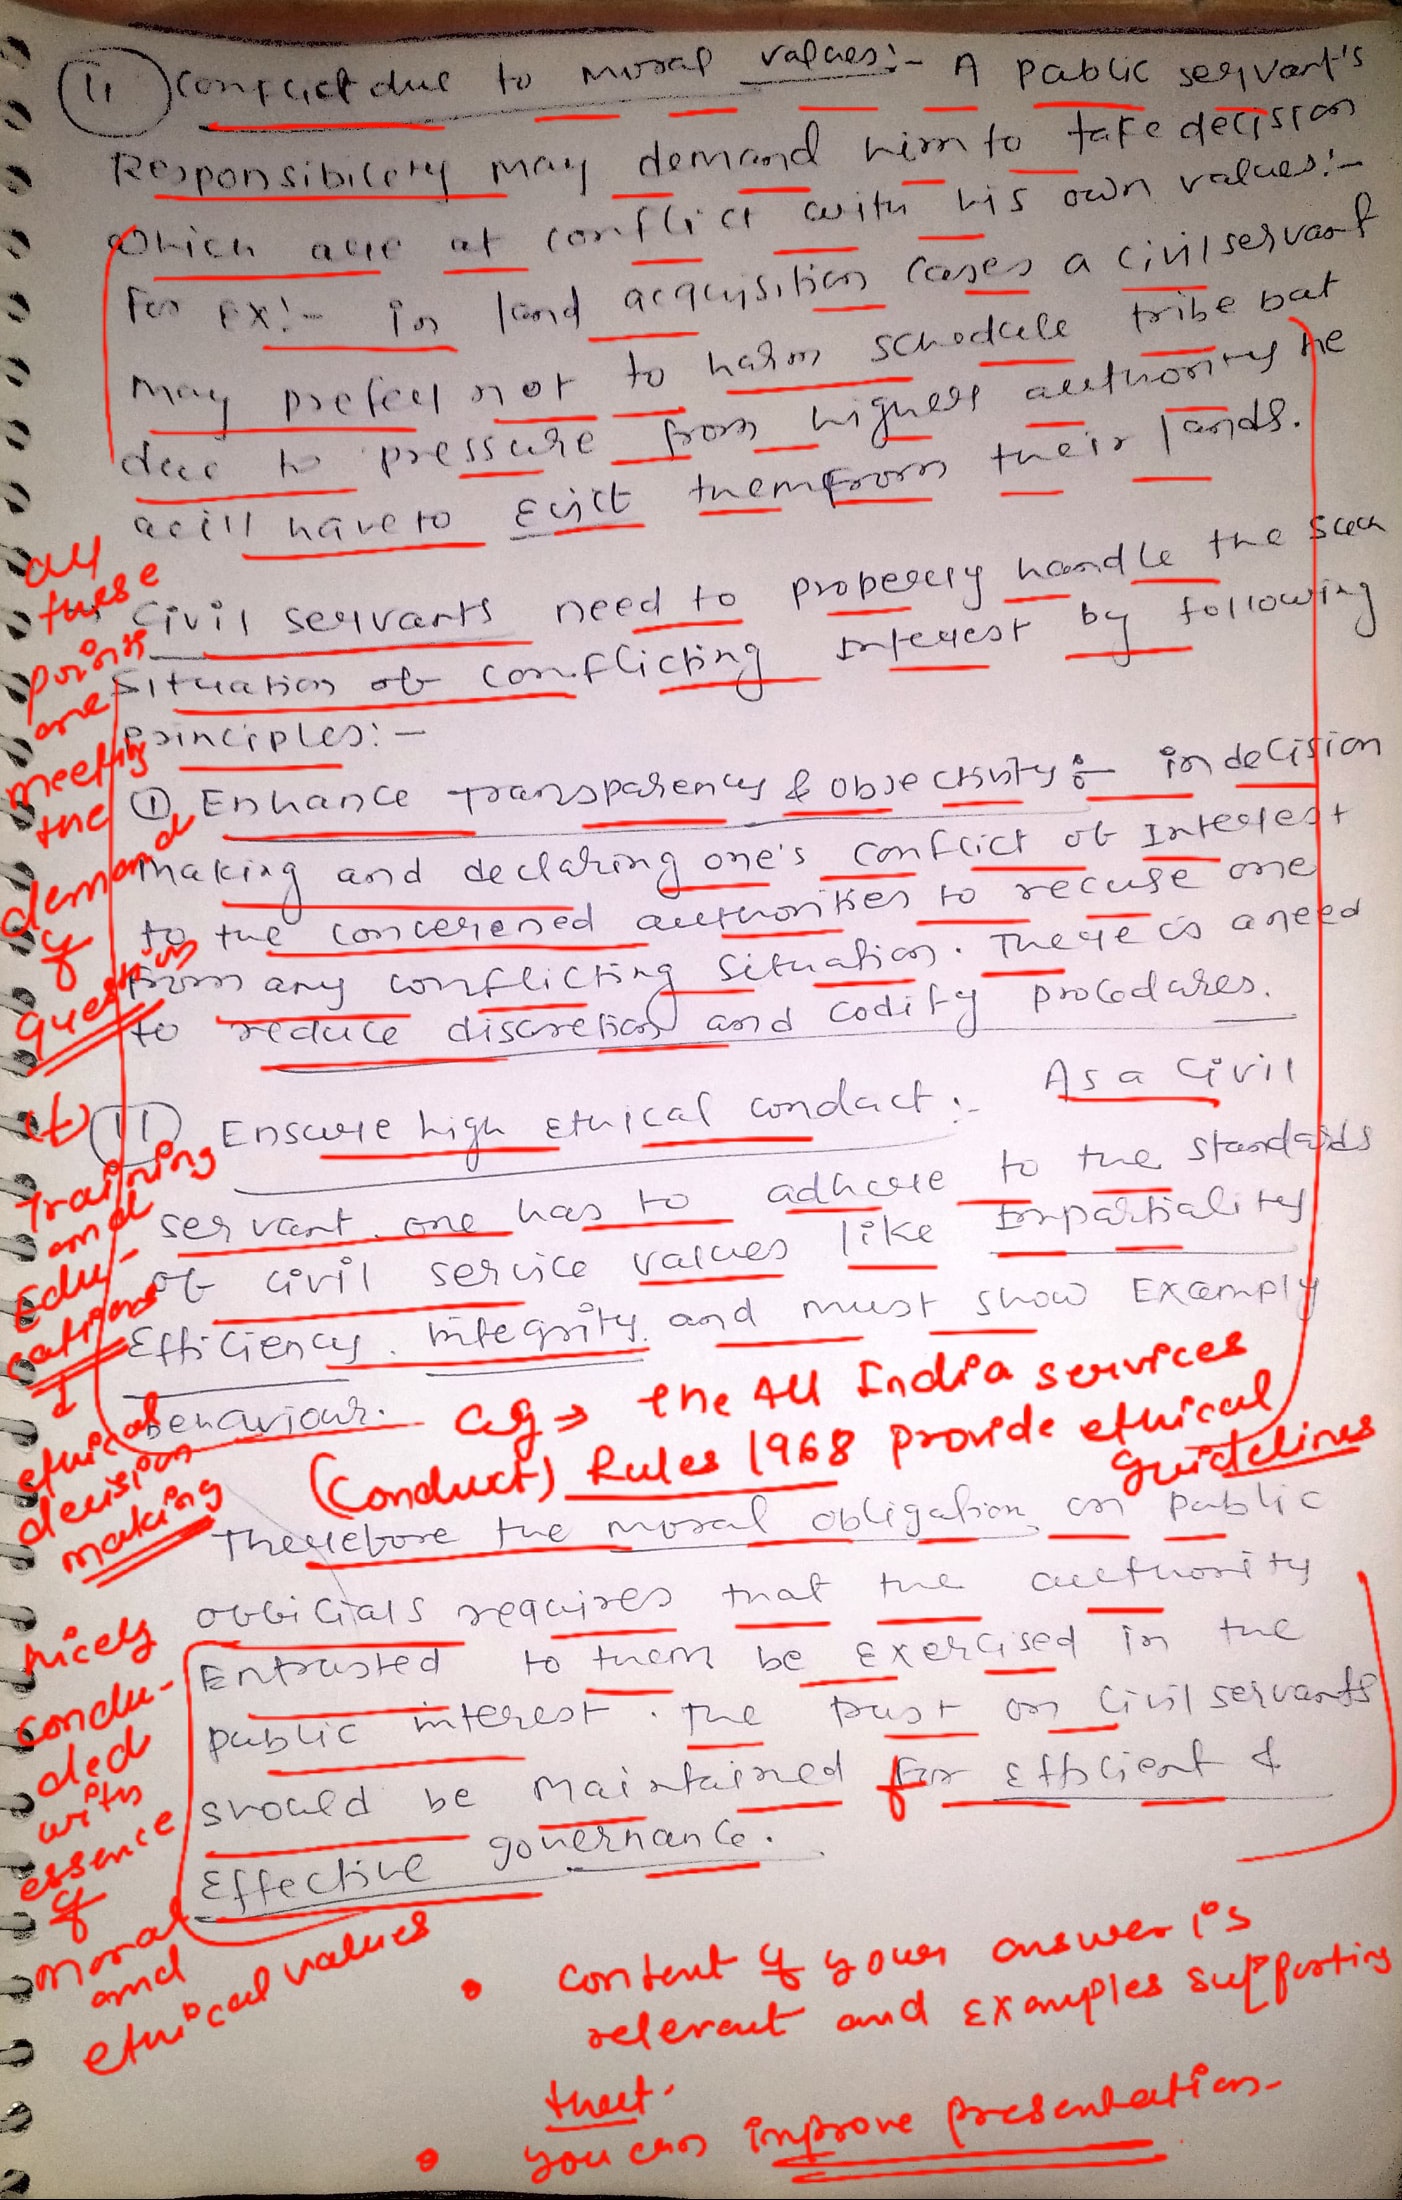 (ii) Conflict due to moral values:- A public servant's
Responsibility may demand him to take decision
which are at conflict with his own values:-
For Ex:- in land acquisition cases a civil servant
may prefer not to harm schedule tribe but
due to pressure from higher authority he
will have to Evict them from their lands.
all
these
points
are
meeting
the
demand
of
question
Civil servants need to properly handle the such
situation of conflicting Interest by following
principles:-
(i) Enhance transparency & objectivity:- in decision
making and declaring one's conflict of Interest
to the concerened authorities to recuse one
from any conflicting situation. There is a need
to reduce discretion and codify procedures.
(ii) Ensure high Ethical conduct:- As a civil
servant one has to adhere to the standards
of civil service values like Impartiality
Efficiency, integrity and must show Examply
behaviour.
Training
and
Edu-
cation
ethical
decision
making
eg → the All India services
(Conduct) Rules 1968 provide ethical
guidelines
Therefore the moral obligation on public
officials requires that the authority
Entrusted to them be Exercised in the
public interest. The trust on Civil servants
should be Maintained for Efficient &
Effective governance.
nicely
conclu-
ded
with
essence
of
moral
and
ethical values
• content of your answer is
relevant and Examples supporting
that.
• you can improve presentation.